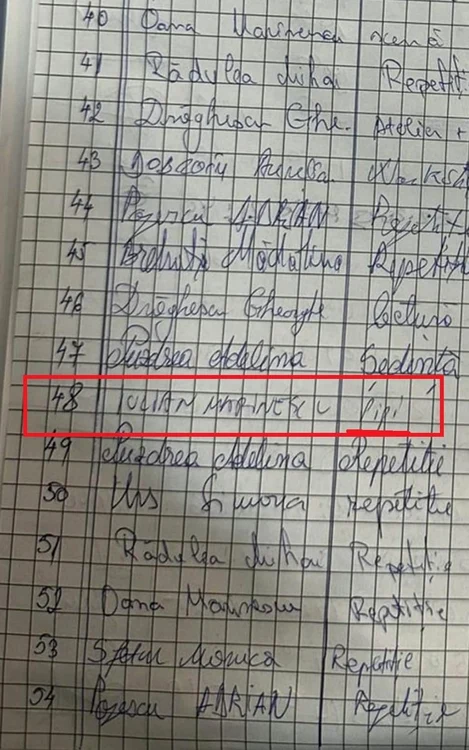 40 Oana Marinescu scenă
41 Rădulea Mihai Repetiți
42 Drăghescu Ghe. Atelier +
43 Aurelia Worksh
44 Popescu ADRIAN Repetiți
45 Mădălina Repetiți
46 Drăghescu Gheorghe lectură
47 Adelina Ședință
48 IULIAN MARINESCU Pipi
49 Adelina Repetiție
50 Urs Simona repetitie
51 Rădulea Mihai Repetiție
52 Oana Marinescu Repetiție
53 Monica Repetitie
54 Popescu ADRIAN Repetiție